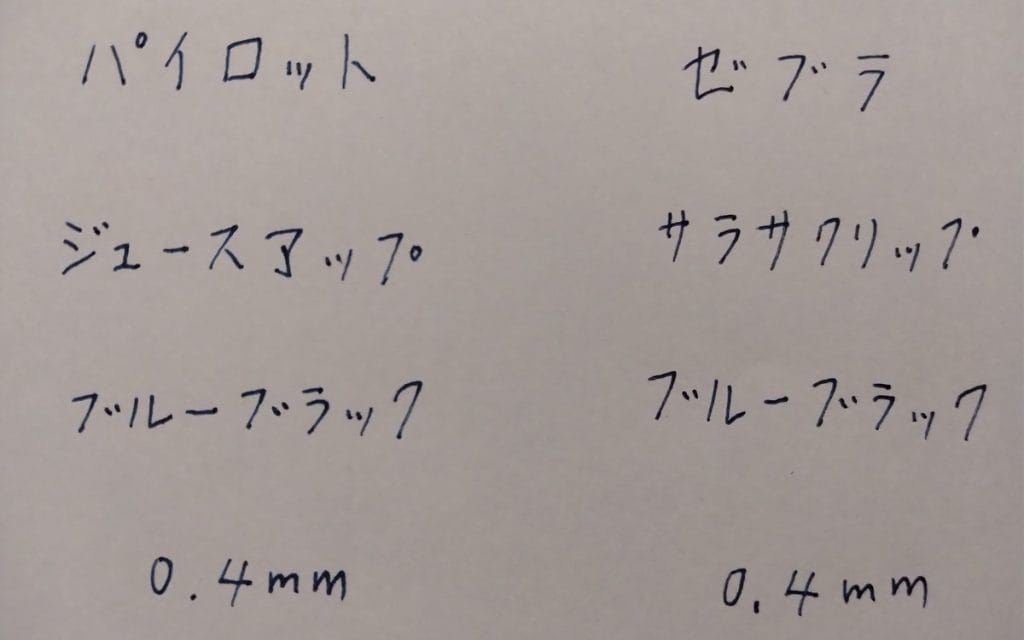 パイロット
ジュースアップ
ブルーブラック
0.4mm
ゼブラ
サラサクリップ
ブルーブラック
0.4mm